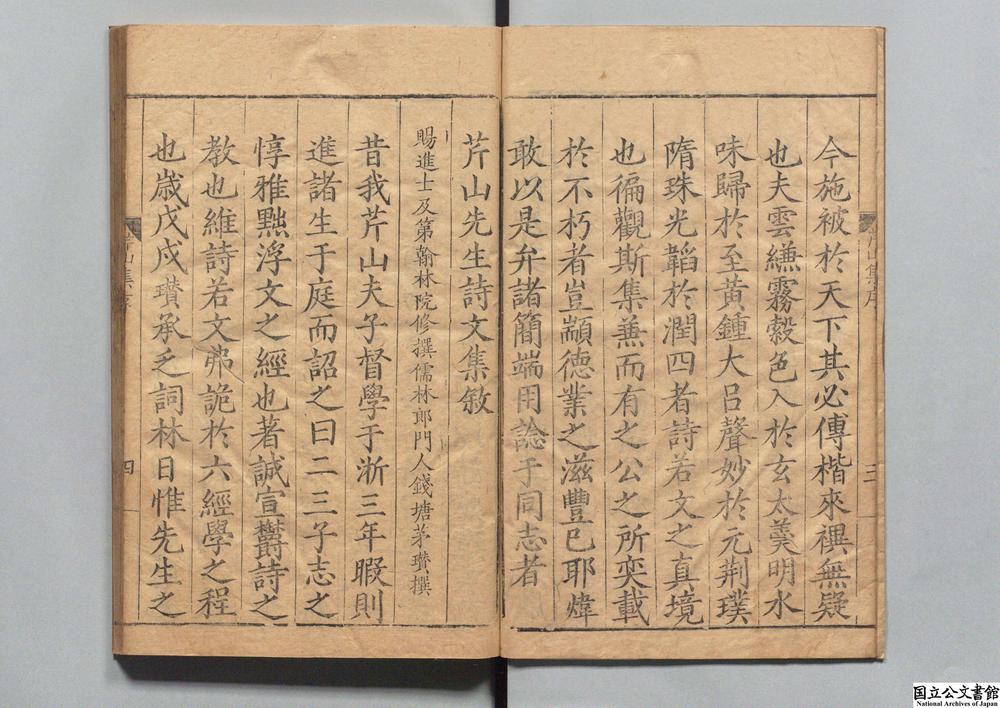 今施被於天下其必傳楷來禩無疑
也夫雲縑霧縠色入於玄太羹明水
味歸於至黃鍾大呂聲妙於元荆璞
隋珠光韜於潤四者詩若文之真境
也徧觀斯集兼而有之公之所奕載
於不朽者豈顓德業之滋豐已耶煒
敢以是弁諸簡端用諗于同志者
芹山先生詩文集敘
賜進士及第翰林院修撰儒林郎門人錢塘茅瓚撰
昔我芹山夫子督學于浙三年暇則
進諸生于庭而詔之曰二三子志之
惇雅黜浮文之經也著誠宣欝詩之
教也維詩若文弗詭於六經學之程
也歲戊戌瓚承乏詞林日惟先生之
三
四
国立公文書館
National Archives of Japan